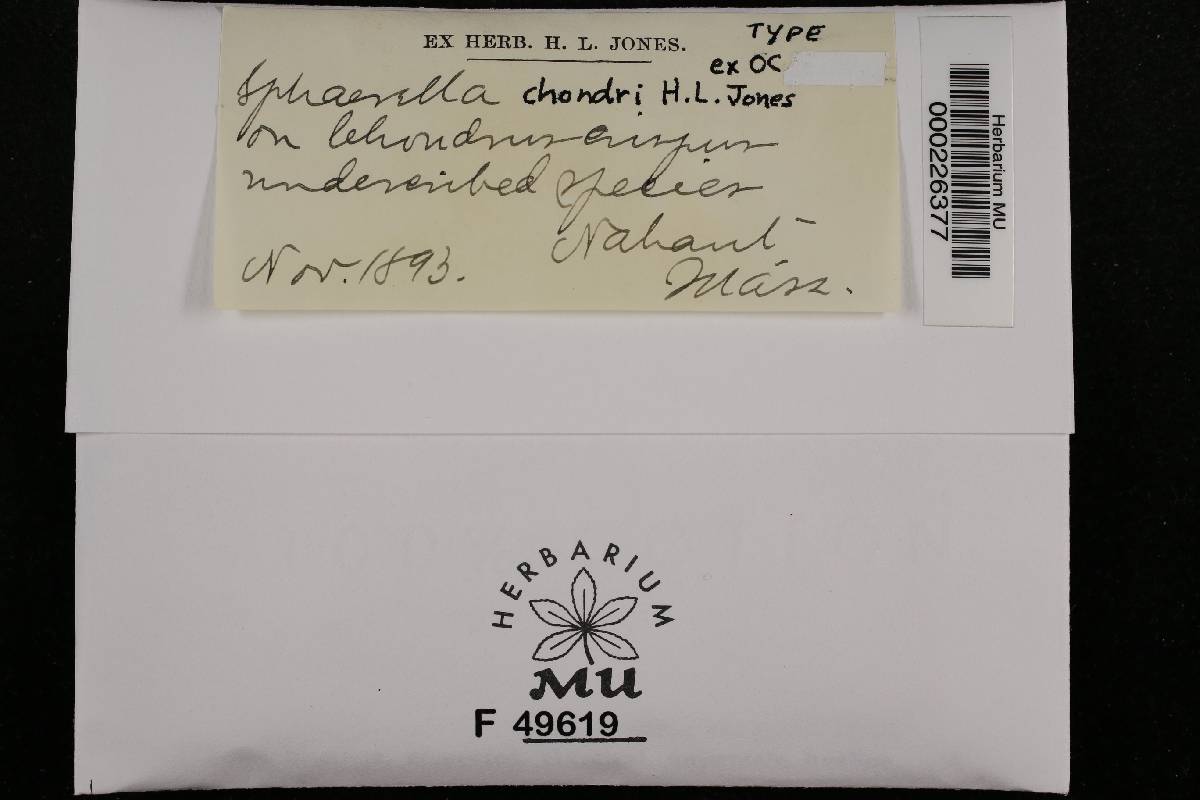 EX HERB. H. L. JONES.
TYPE
ex OC
Sphaerella chondri H.L. Jones
on Chondrus crispus
undescribed species
Nahant
Nov. 1893.
Mass.
Herbarium MU
000226377
HERBARIUM
MU
F 49619